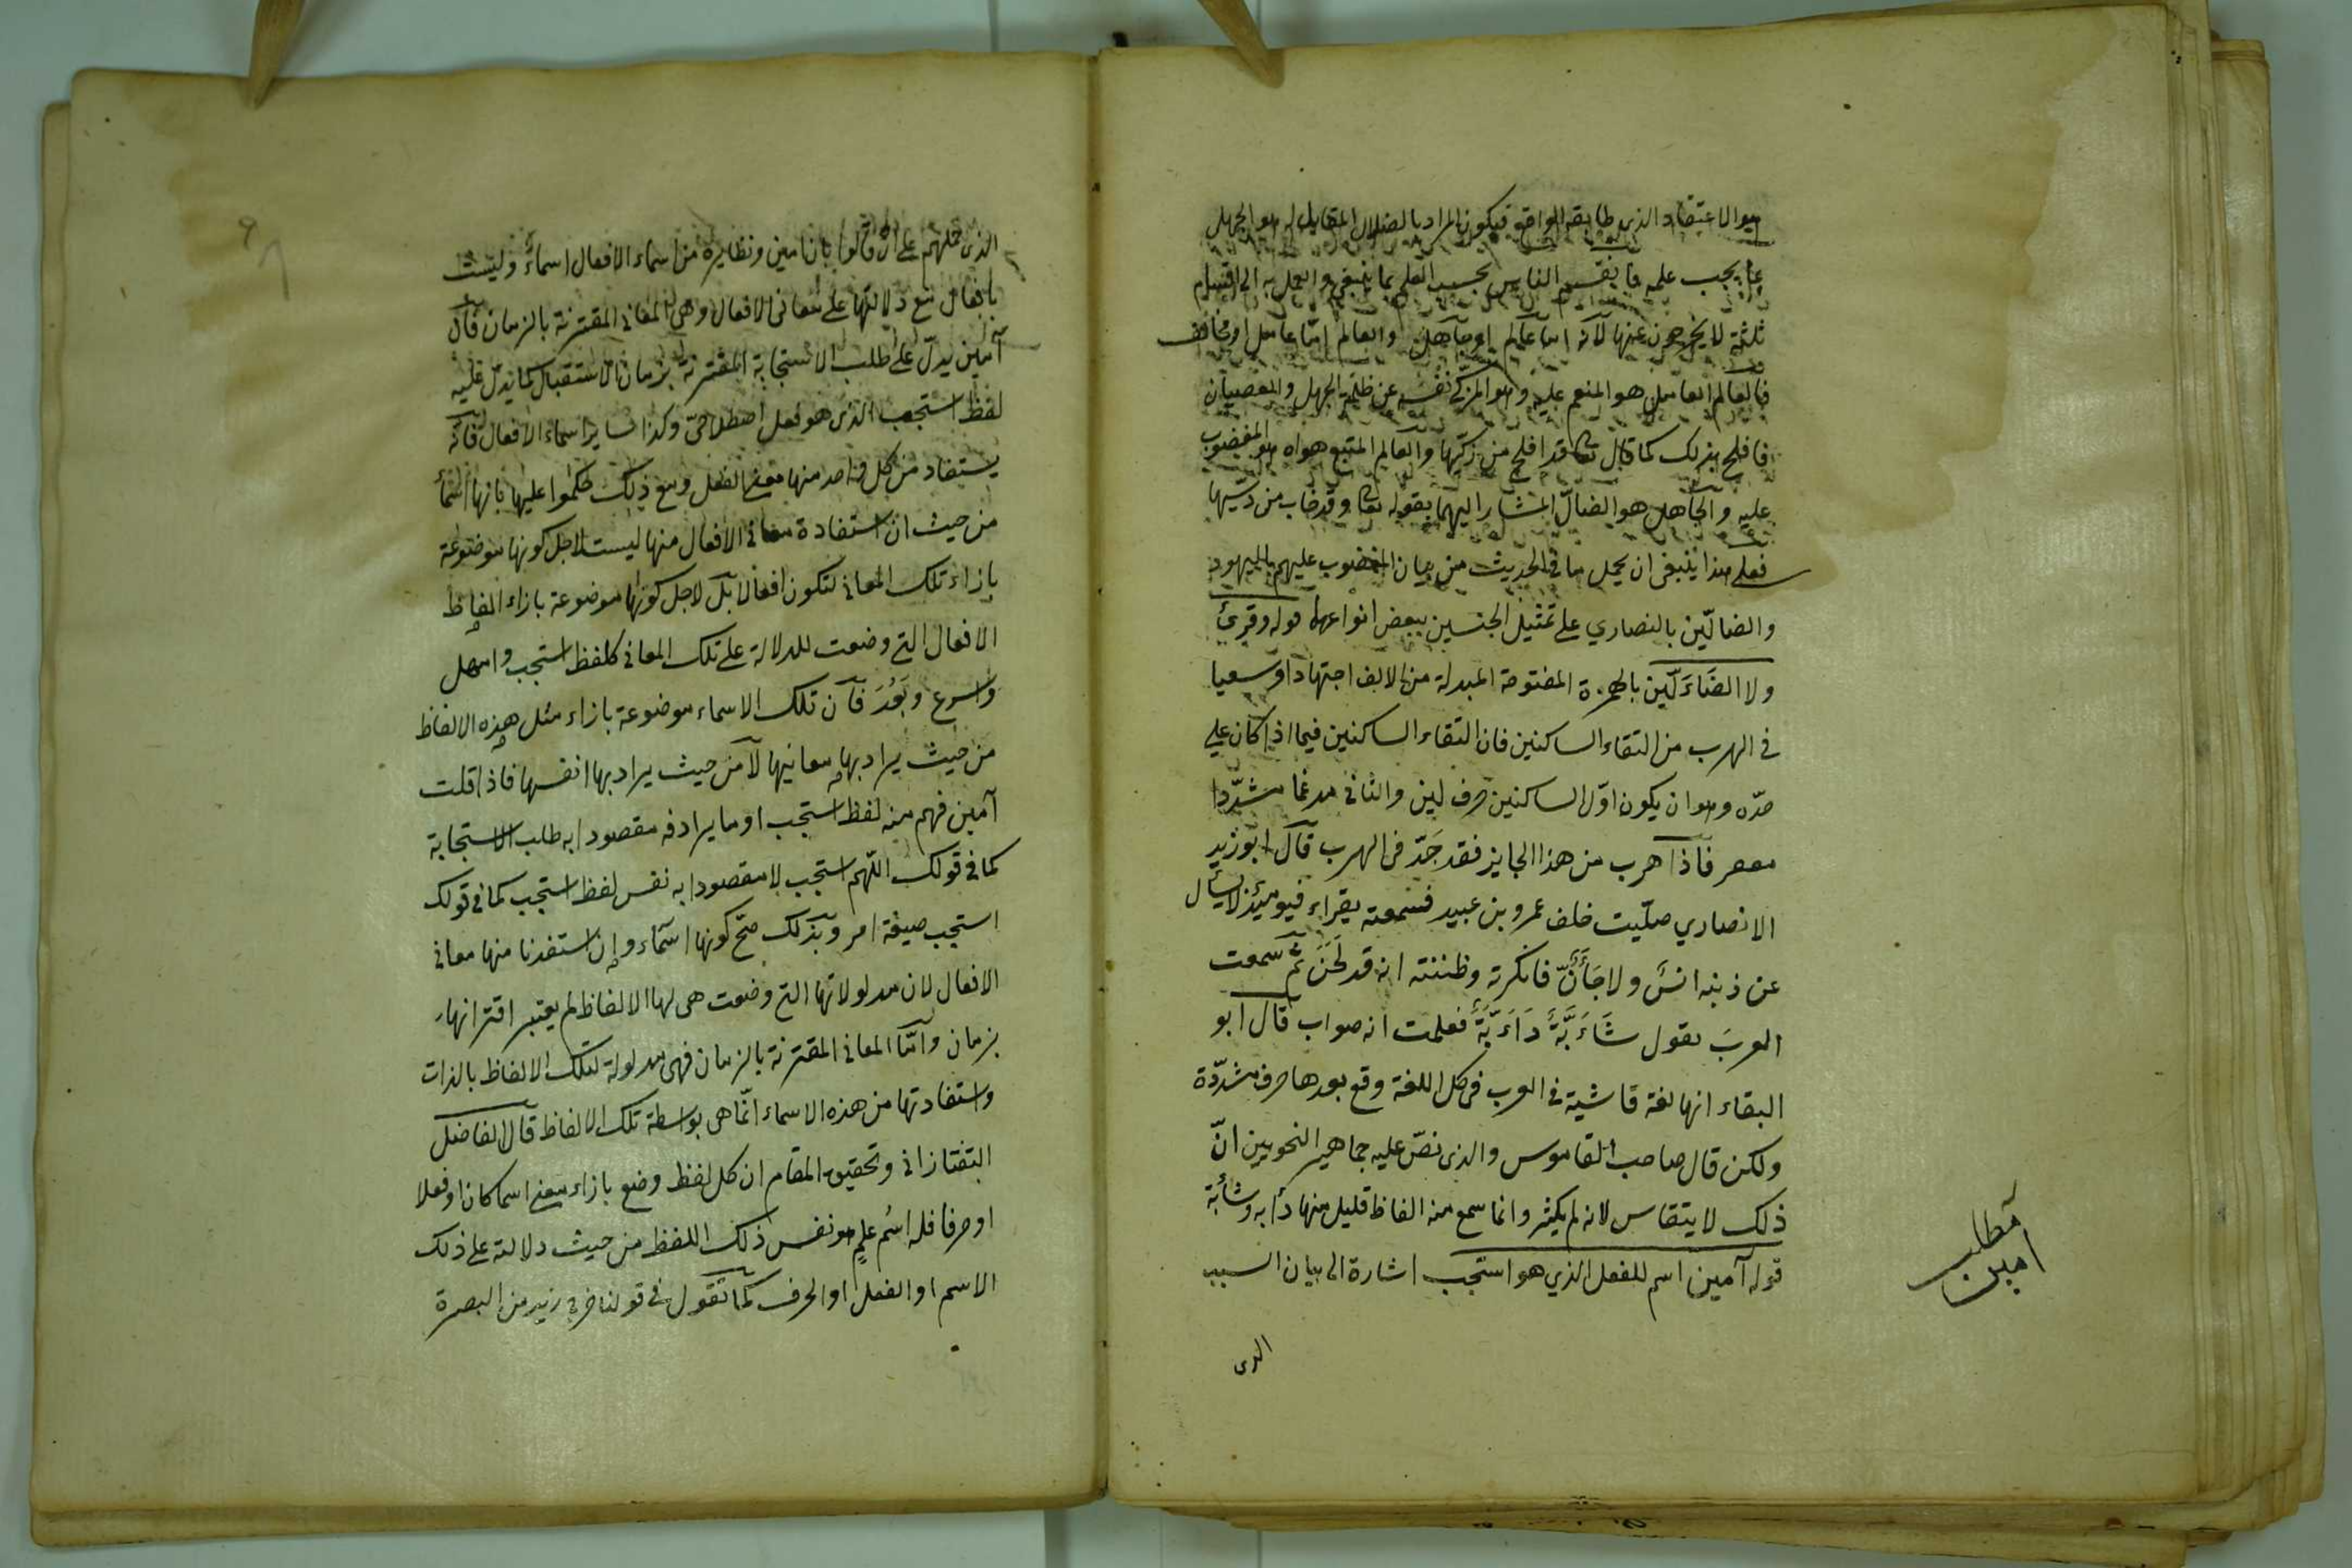 هو الاعتقاد الذى طابقه الواقع فيكون المراد بالضلال المقابل له هو الجهل
بما يجب علمه فانقسم الناس بحسب العلم بما ينبغى والعمل به الى اقسام
ثلثة لا يخرجون عنها لانه اما عالم او جاهل والعالم امّا عامل او مخالف
فالعالم العامل هو المنعم عليه وهو المزكّى نفسه عن ظلمة الجهل والعصيان
فافلح بذلك كما قال تعا قد افلح من زكّيها والعالم المتبع هواه هو المغضوب
عليه والجاهل هو الضالّ المشار اليهما بقوله تعا وقد خاب من دسّيها
فعلى هذا ينبغى ان يحمل ما فى الحديث من بيان المغضوب عليهم باليهود
والضالّين بالنصاري على تمثيل الجنسين ببعض انواعها قوله وقرئ
ولا الضَاءَلّين بالهمزة المفتوحة المبدلة من الالف اجتهادا وسعيا
فى الهرب من التقاء الساكنين فان التقاء الساكنين فيما اذا كان على
حدّه وهو ان يكون اوّل الساكنين حرف لين والثانى مدغما مشدّدا
مغتفر فاذا هرب من هذا الجايز فقد جَدّ فى الهرب قال ابو زيد
الانصاري صلّيت خلف عمرو بن عبيد فسمعته يقراء فيومئذ لا يسأل
عن ذنبه انسٌ ولا جَأَنٌّ فانكرته وظننته انه قد لَحَنَ ثم سمعت
العربَ يقول شَاءَبَّةٌ دَاءَبَّةٌ فعلمت انه صواب قال ابو
البقاء انها لغة فاشية فى العرب فى كل اللغة وقع بعدها حرف مشدّدة
ولكن قال صاحب القاموس والذى نصّ عليه جماهير النحويين انّ
ذلك لا يتقاس لانه لم يكثر وانما سمع منه الفاظ قليل منها دأبه وشأبة
قوله آمين اسم للفعل الذي هو استجب اشارة الى بيان السبب
مطلب
امين
الذى
الذى حملهم على ان قالوا بان امين ونظايره من اسماء الافعال اسماءٌ وليست
بافعال مع دلالتها على معانى الافعال وهى المعانى المقترنة بالزمان فان
آمين يدلّ على طلب الاستجابة المقترنة بزمان الاستقبال كما يدلّ عليه
لفظ استجب الذى هو فعل اصطلاحىّ وكذا ساير اسماء الافعال فانه
يستفاد من كل واحد منها معنى الفعل ومع ذلك حكموا عليها بانها اسماء
من حيث ان استفادة معانى الافعال منها ليست لاجل كونها موضوعة
بازاء تلك المعانى لتكون افعالا بل لاجل كونها موضوعة بازاء الفاظ
الافعال التى وضعت للدلالة على تلك المعانى كلفظ استجب وامهل
واسرع وبَعُدَ فان تلك الاسماء موضوعة بازاء مثل هذه الالفاظ
من حيث يراد بها معانيها لا من حيث يراد بها انفسها فاذا قلت
آمين فهم منه لفظ استجب او ما يرادفه مقصودا به طلب الاستجابة
كما فى قولك اللهم استجب لا مقصودا به نفس لفظ استجب كما فى قولك
استجب صيغة امر وبذلك صحّ كونها اسماء وان استفدنا منها معانى
الافعال لان مدلولاتها التى وضعت هى لها الالفاظ لم يعتبر اقترانها
بزمان وامّا المعانى المقترنة بالزمان فهى مدلولة لتلك الالفاظ بالذات
واستفادتها من هذه الاسماء انّما هى بواسطة تلك الالفاظ قال الفاضل
التفتازانى وتحقيق المقام ان كل لفظ وضع بازاء معنى اسما كان او فعلا
او حرفا فله اسُم علمٍ هو نفس ذلك اللفظ من حيث دلالته على ذلك
الاسم او الفعل او الحرف كما تقول فى قولنا خرج زيد من البصرة